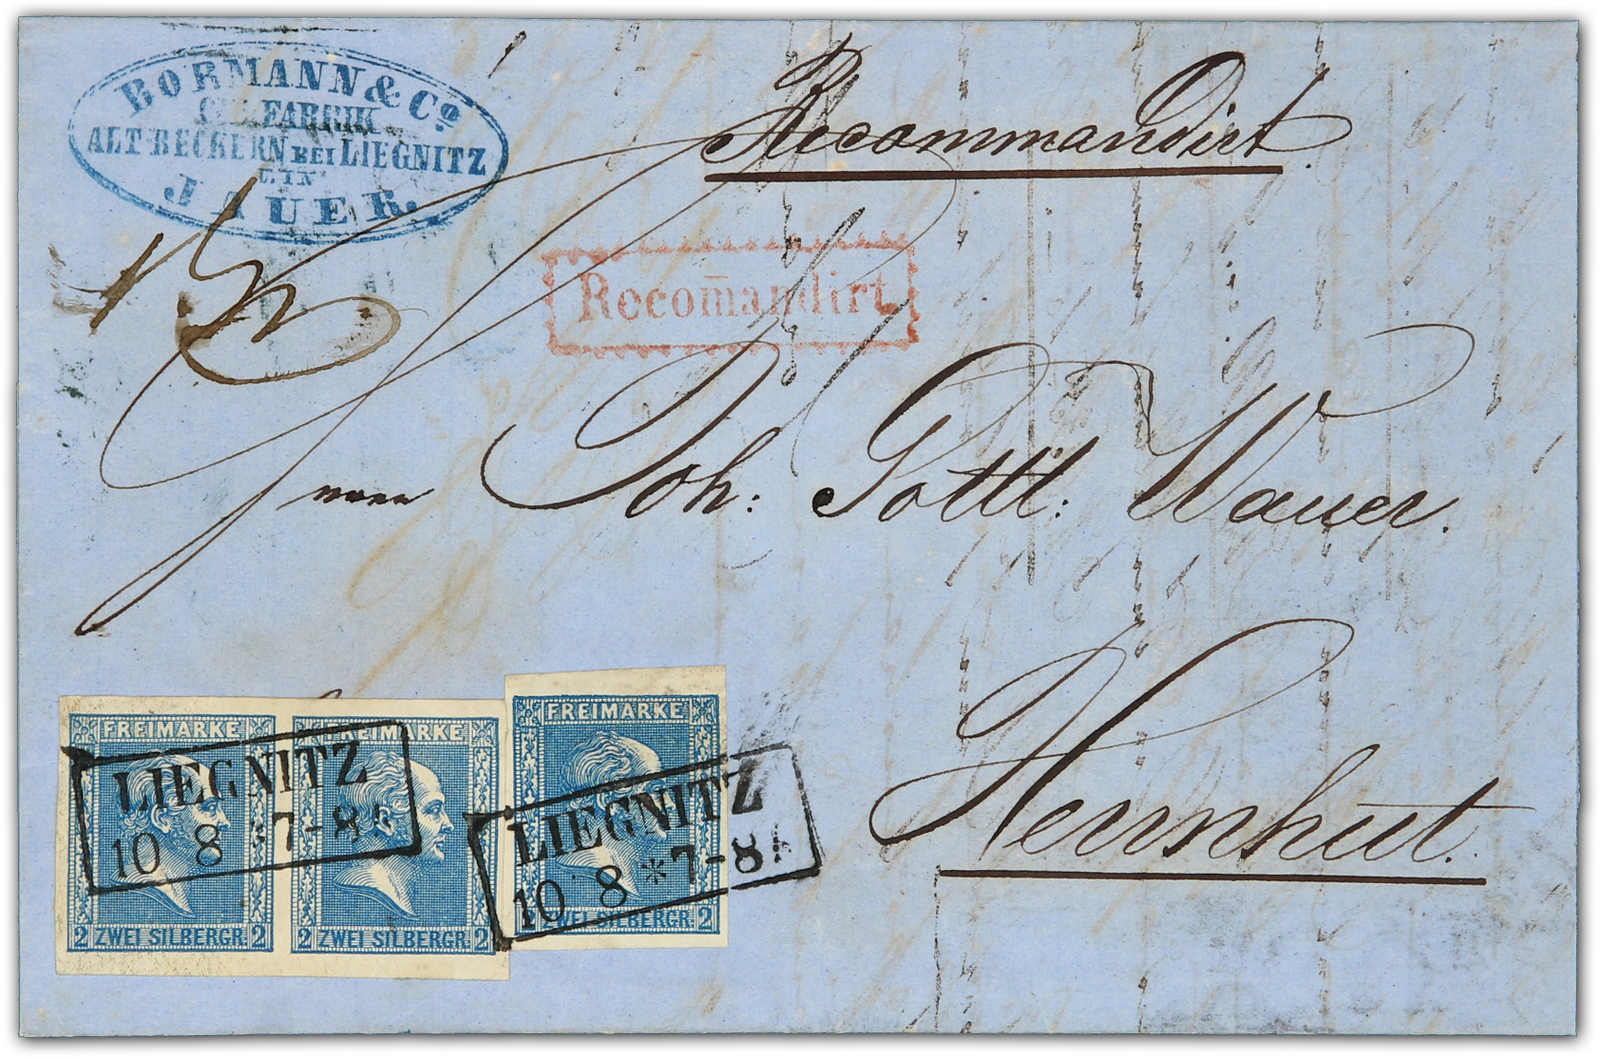 BORMANN & Co
FABRIK
ALT-BECKERN BEI LIEGNITZ
JAUER.
Recommandirt
Recom̄andirt
Joh: Gottl: Wauer.
Herrnhut.
FREIMARKE FREIMARKE FREIMARKE
LIEGNITZ LIEGNITZ
10 8 *7-8 10 8 *7-8
2 ZWEI SILBERGR. 2 2 ZWEI SILBERGR. 2 2 ZWEI SILBERGR. 2